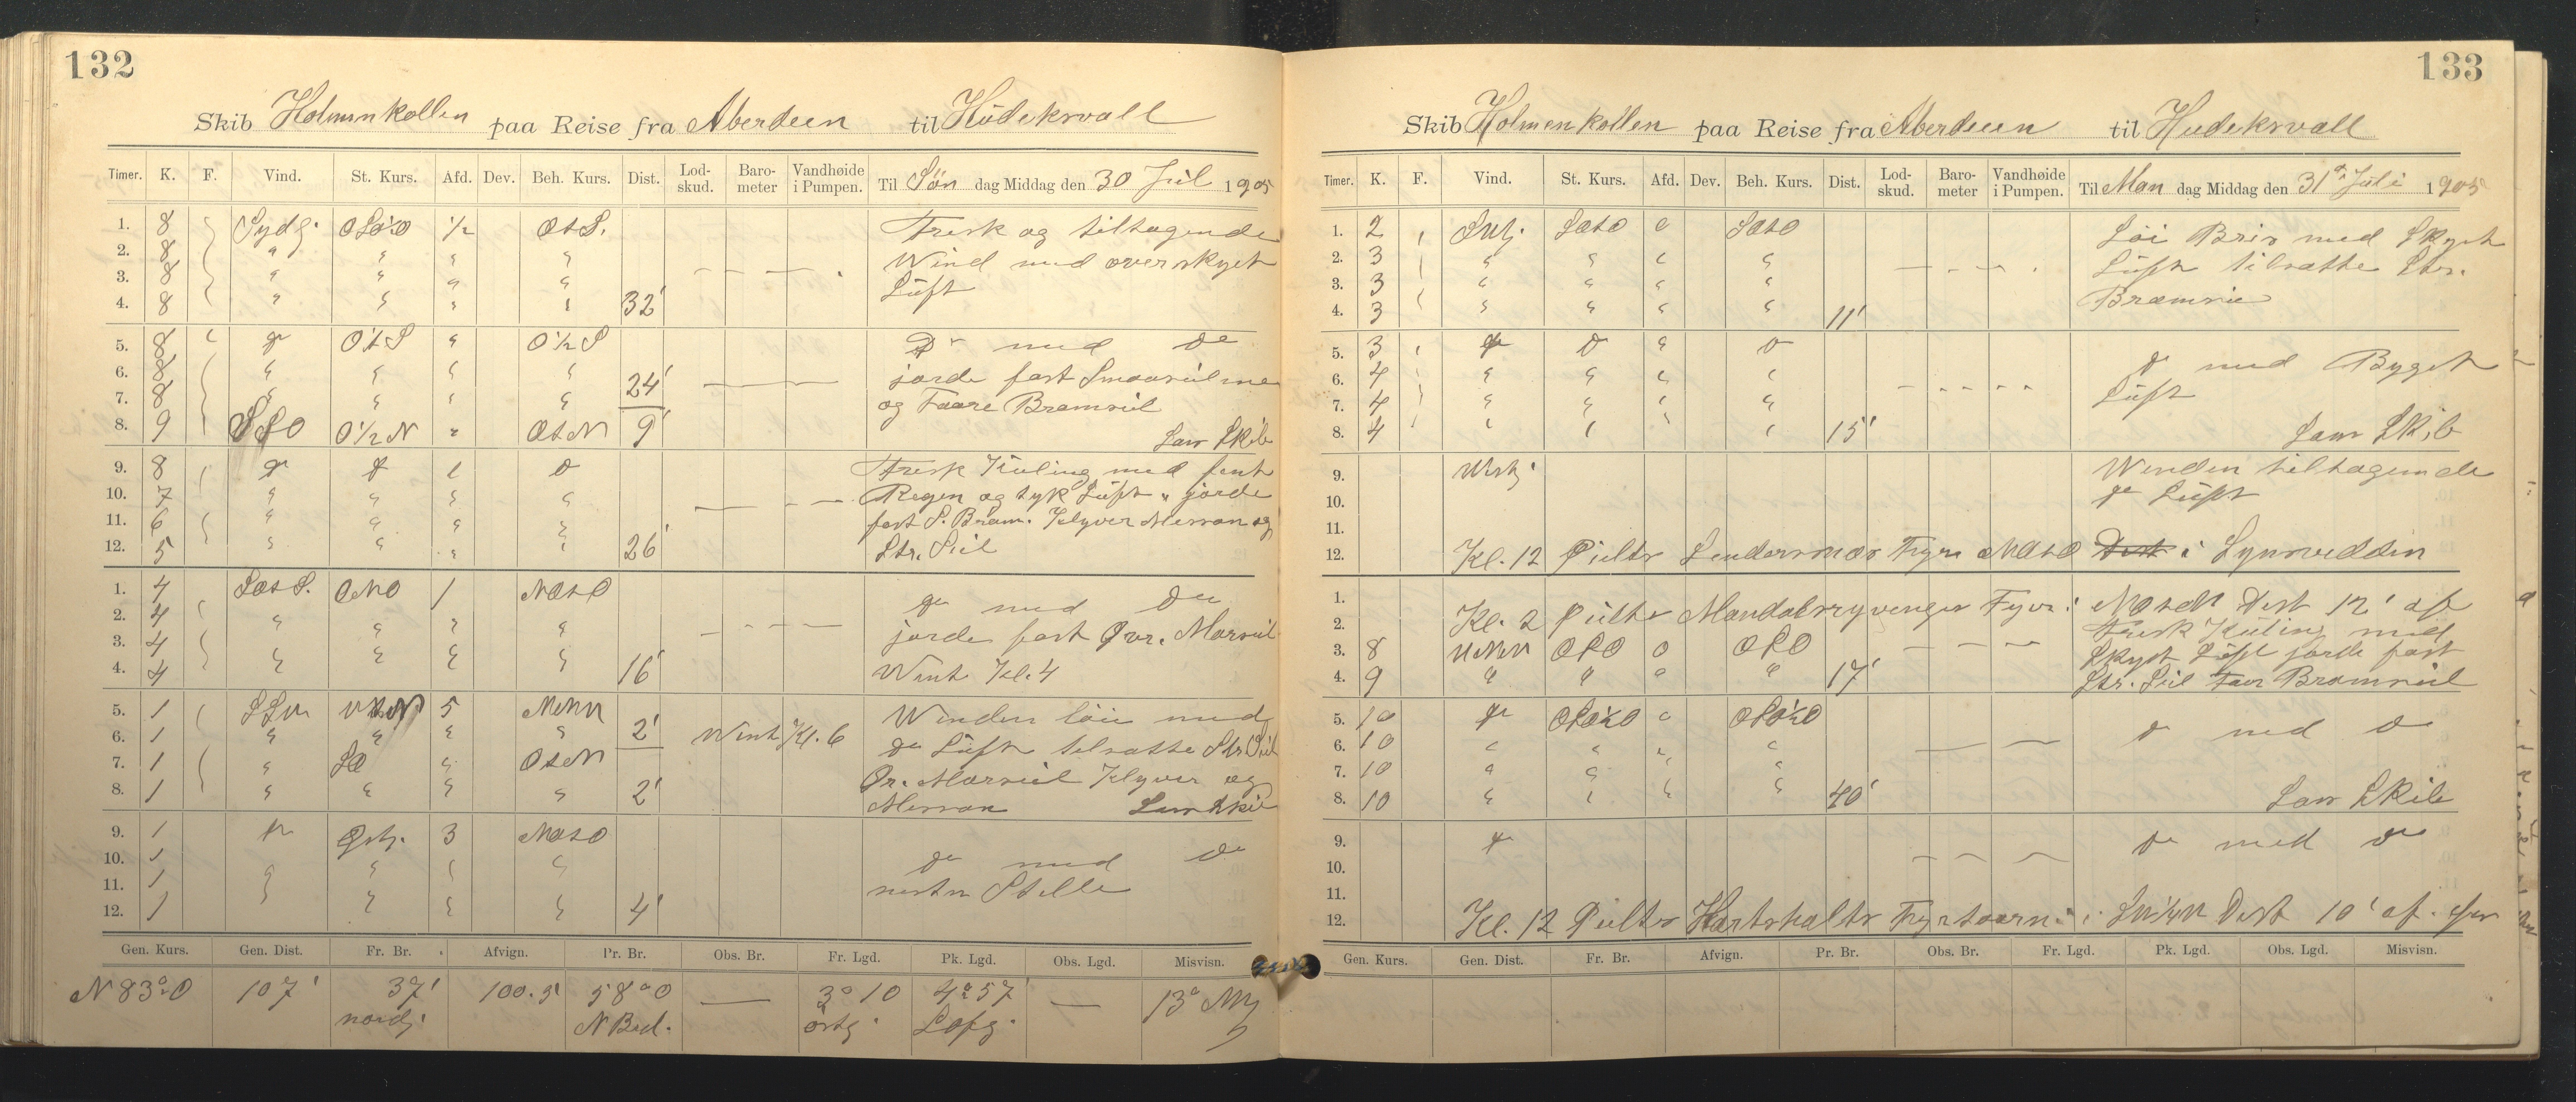 132
Skib Holmenkollen paa Reise fra Aberdeen til Hudeksvall
Timer. K. F. Vind. St. Kurs. Afd. Dev. Beh. Kurs. Dist. Lod-skud. Baro-meter Vandhøide i Pumpen. Til Søn dag Middag den 30 Jul 1905
1. 8 Sydg. 1/2 OtS. Fresk og tiltagende
2. 8 " " " " Wind med overskyet
3. 8 " " " " Lüft
4. 8 " " " " 32'
5. 8 " " O 1/2 S Do med Do
6. 8 " " " " jorde fast Smaaseilene
7. 8 " " " " 24' og Faare Bramseil
8. 9 SSO O 1/2 N " OtN 9' Lam Skib
9. 8 Do Do " Do Fresk Küling med fint
10. 7 " " " " Regen og tyk Lüft " jorde
11. 6 " " " " fast S. Bram. Klyver Mersan og
12. 5 " " " " 26' Str. Seil
1. 4 SOtS. ONO 1 NOtO Do med Do
2. 4 " " " "
3. 4 " " " " jorde fast Øvr. Marseil
4. 4 " " " " 16' Went Kl. 4
5. 1 5 Winden løie med
6. 1 " " " " 2' Went Kl. 6 Do Lüft tilsatte Str Seil
7. 1 " SO " OtN Øv. Marseil Klyver og
8. 1 " " " " 2' Mersan Lam Skib
9. 1 Do Østg. 3 NOtO Do med Do
10. 1 " " "
11. 1 " " " " nesten Stille
12. 1 " " " 4'
Gen. Kurs. Gen. Dist. Fr. Br. Afvign. Pr. Br. Obs. Br. Fr. Lgd. Pk. Lgd. Obs. Lgd. Misvisn.
N 83° O 107' 37' 100.5' 58° 0 — 3° 10 4° 57' — 13°
nordg. N Bred. østg.
133
Skib Holmenkollen paa Reise fra Aberdeen til Hudeksvall
Timer. K. F. Vind. St. Kurs. Afd. Dev. Beh. Kurs. Dist. Lod-skud. Baro-meter Vandhøide i Pumpen. Til Man dag Middag den 31te Juli 1905
1. 2 SOtO 0 SOtO Løi Bris med Skyet
2. 3 " " " " Lüft tilsatte Str.
3. 3 " " " " Bramseil
4. 3 " " " " 11'
5. 3 Do Do " Do Do med Byget
6. 4 " " " "
7. 4 " " " " Lüft
8. 4 " " " " 15' Lam Skib
9. Westg. Winden tiltagende
10. Do Lüft
11.
12. Kl. 12 Peilte Lindersnæs Fyr NOtO i Synsvidden
1.
2. Kl. 2 Peilte Mandalsryvenger Fyr i NOtN Dist 12' af
Fresk Küling med
3. 8 OSO 0 OSO Skyet Lüft jorde fast
4. 9 " " " " 17' Str. Seil Faar Bramseil
5. 10 Do 0 Do med Do
6. 10 " " " "
7. 10 " " " "
8. 10 " " " " 40' Lam Skib
9. Do Do med Do
10.
11.
12. Kl. 12 Peilte Hartshalts Fyrtaarn i Dist 10' af
Gen. Kurs. Gen. Dist. Fr. Br. Afvign. Pr. Br. Obs. Br. Fr. Lgd. Pk. Lgd. Obs. Lgd. Misvisn.